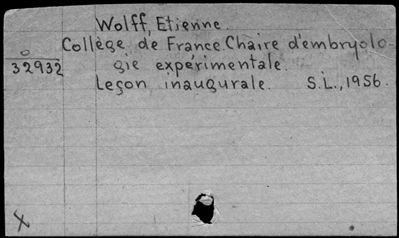 Wolff, Etienne.
o Collège de France. Chaire d'embryolo-
32932 gie expérimentale.
Leçon inaugurale. S.L., 1956.
X